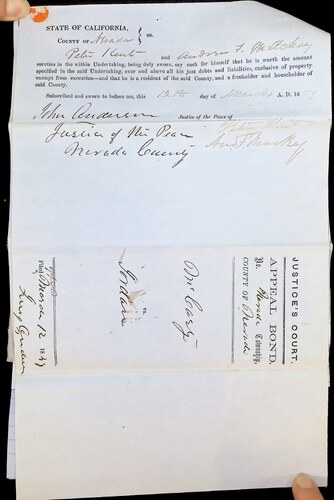 STATE OF CALIFORNIA,
COUNTY OF Nevada } ss.
Peter Kent and Andrew F. Mackey
sureties in the within Undertaking, being duly sworn, say, each for himself that he is worth the amount
specified in the said Undertaking, over and above all his just debts and liabilities, exclusive of property
exempt from execution—and that he is a resident of the said County, and a freeholder and householder of
said County.
Subscribed and sworn to before me, this 12th day of A. D. 18
John Anderson Justice of the Peace of
Justice of the Peace
Nevada County
JUSTICE'S COURT.
APPEAL BOND.
Nevada Township,
COUNTY OF Nevada
McCarty
vs.
Jordan
Filed 12 18